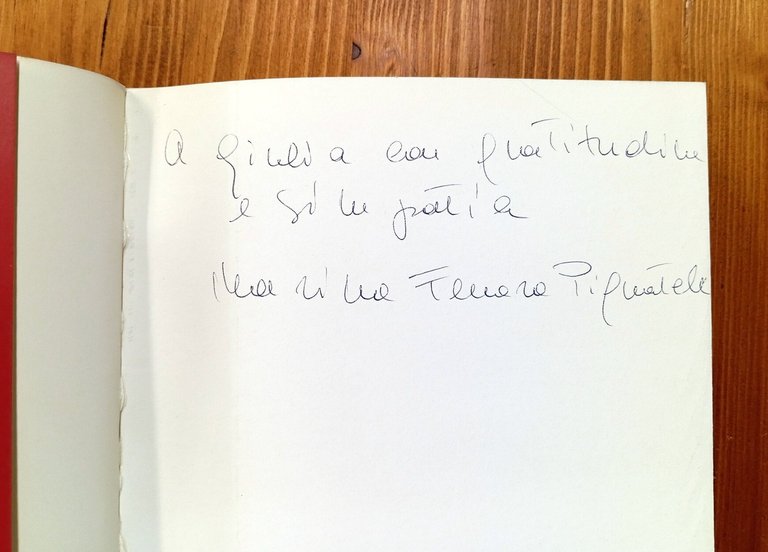 A Giulia con gratitudine
e simpatia
Marina Ferrara Pignatelli